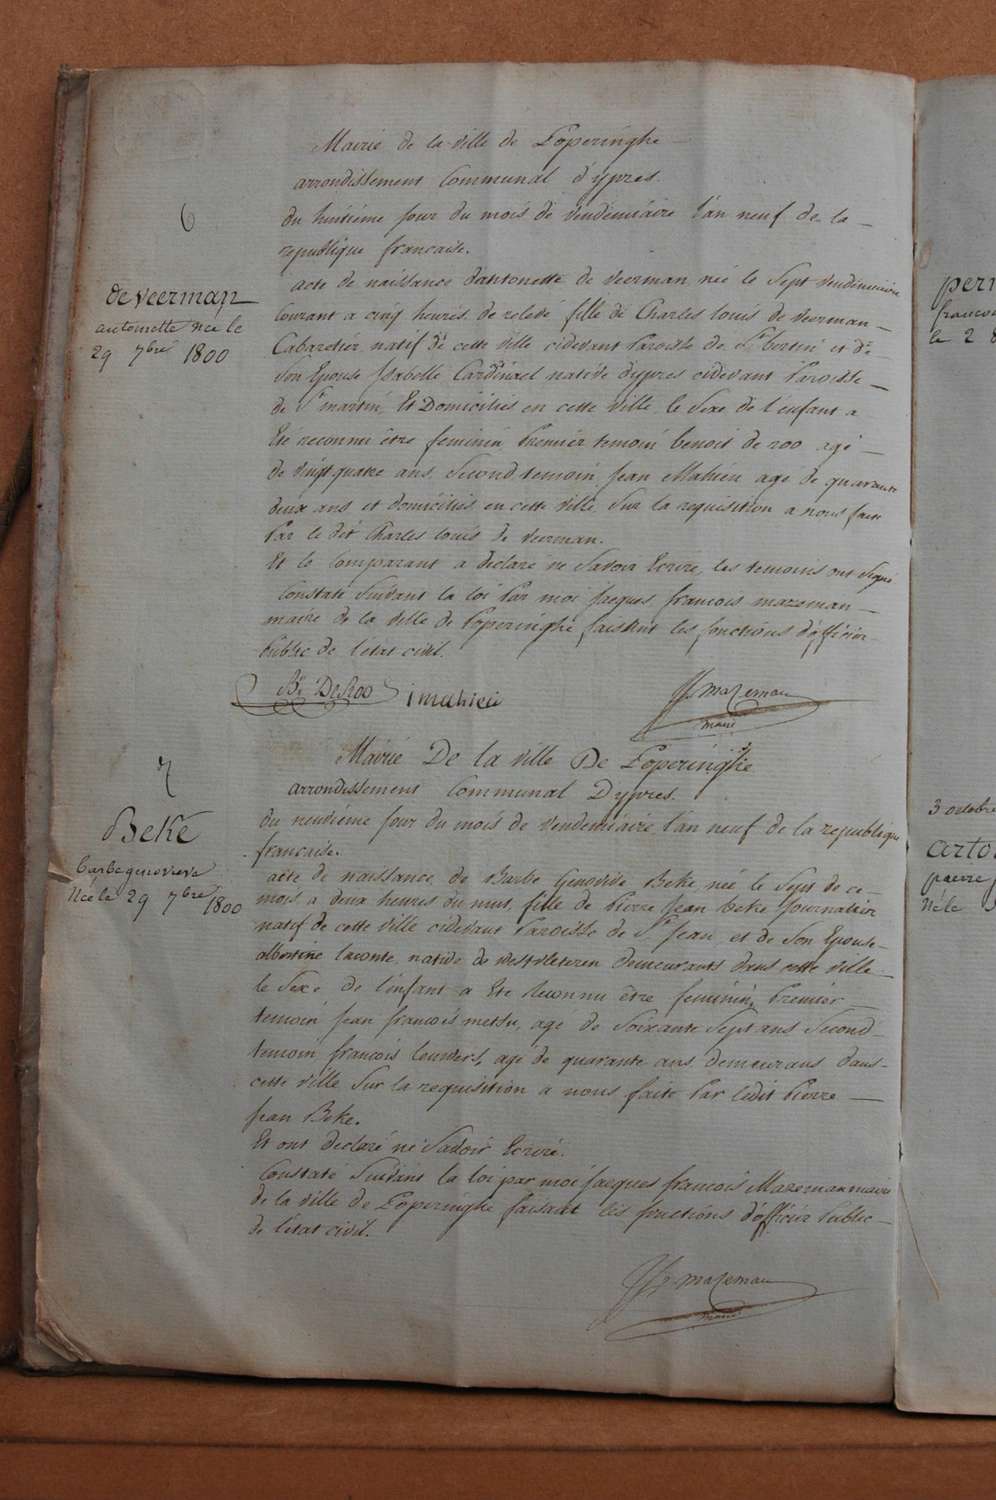 6
de veerman
antoinette née le
29 7bre 1800
Mairie de la ville de Poperinghe
arrondissement Communal d'ypres.
du huitième jour du mois de vendemiaire l'an neuf de la
republique francaise.
acte de naissance dantonette de veerman née le Sept vendemiaire
Courant a cinq heures de relevé fille de Charles louis de veerman
Cabaretier natif de cette ville cidevant Paroisse de St bertin et de
Son Epouse Isabelle Cardinael native dypres cidevant Paroisse
de St martin, Et Domiciliés en cette ville, le Sexe de l'enfant a
Eté reconnu être feminin Premier temoin benoit de roo agé
de vingt quatre ans Second temoin Jean Mahieu agé de quarante
deux ans et domiciliés en cette ville Sur la requisition a nous faite
Par le dit Charles louis de veerman.
Et le Comparant a declaré ne Savoir Ecrire, les temoins ont Signé
Constaté Suivant la loi Par moi Jacques francois mazeman
maire de la ville de Poperinghe faisant les fonctions d'officier
Public de l'état civil.
Bt DeRoo
j mahieu
JJ mazeman
maire
7
Beke
barbe genovieve
Née le 29 7bre 1800
Mairie De la ville De Poperinghe
arrondissement Communal Dypres.
du neuvième jour du mois de vendemiaire l'an neuf de la republique
francaise.
acte de naissance de Barbe Genovive Beke, née le Sept de ce
mois, a deux heures du nuit, fille de Pierre Jean beke Journalier
natif de cette ville cidevant Paroisse de St Jean, et de Son Epouse
albertine laconte native de westvleteren demeurants dans cette ville
le Sexe de l'enfant a Eté Reconnu être feminin, Premier
temoin Jean francois metsu, agé de Soixante Sept ans Second
temoin francois leuwers, agé de quarante ans demeurans dans
cette ville Sur la requisition a nous faite Par ledit Pierre
Jean Beke.
Et ont declaré ne Savoir Ecrire.
Constaté Suivant la loi par moi Jacques francois Mazeman maire
de la ville de Poperinghe faisant les fonctions d'officier Public
de l'état civil.
JJ mazeman
maire
le 2
3 octobre
carto
pierre
Né le